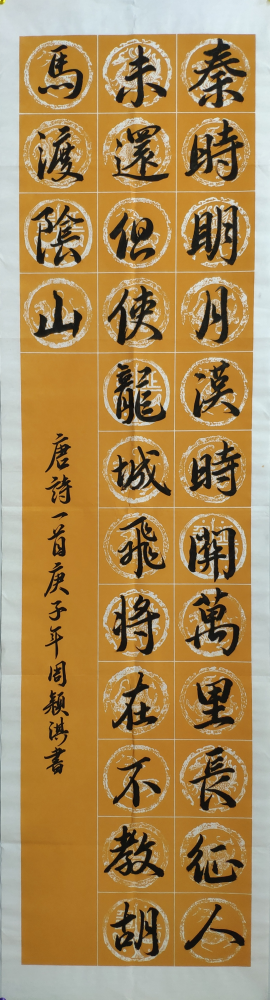 秦時明月漢時開萬里長征人
未還但使龍城飛將在不教胡
馬渡陰山
唐詩一首庚子年周穎淇書